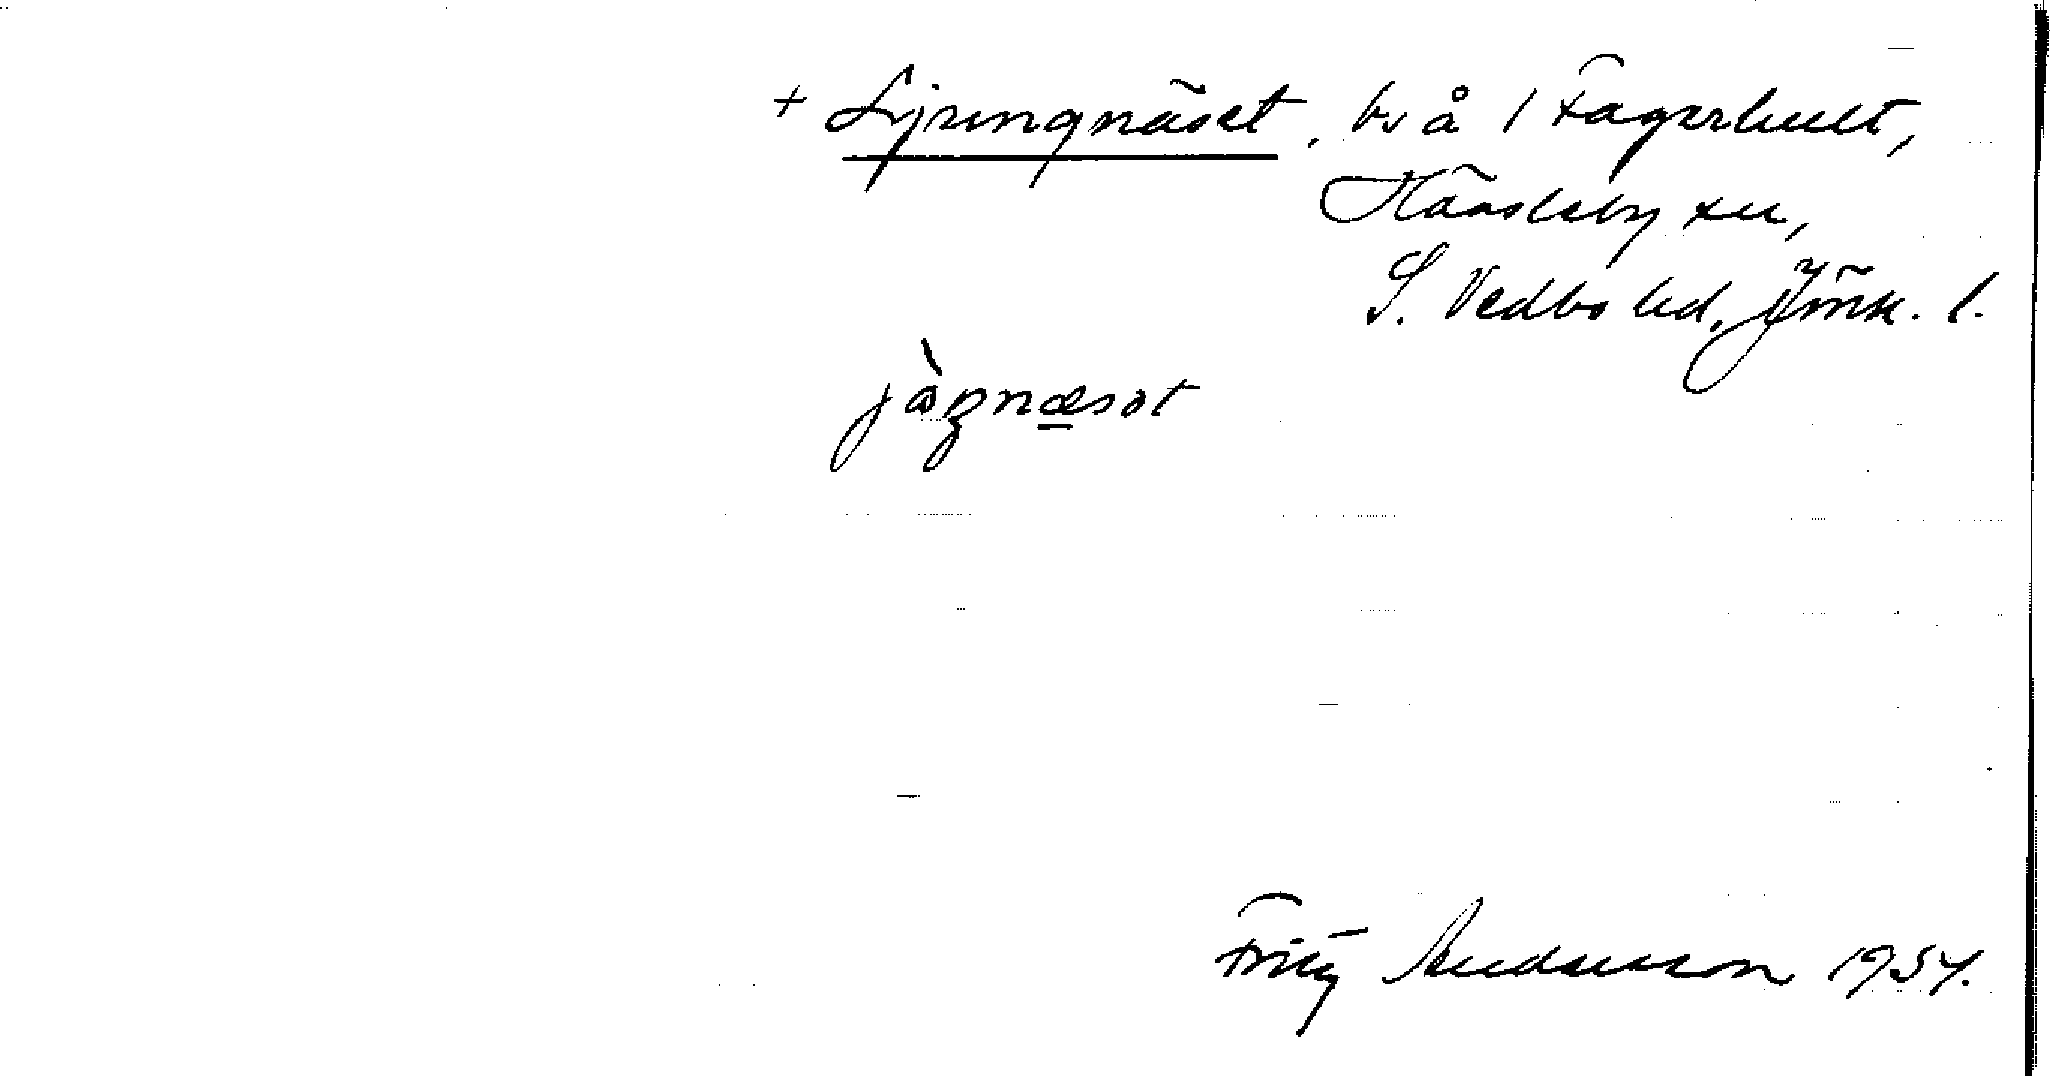 + Ljungnäset, bs å 1 Fagerhult,
Hässleby sn,
S. Vedbo hd, Jönk. l.
Fritz Andersson 1954.